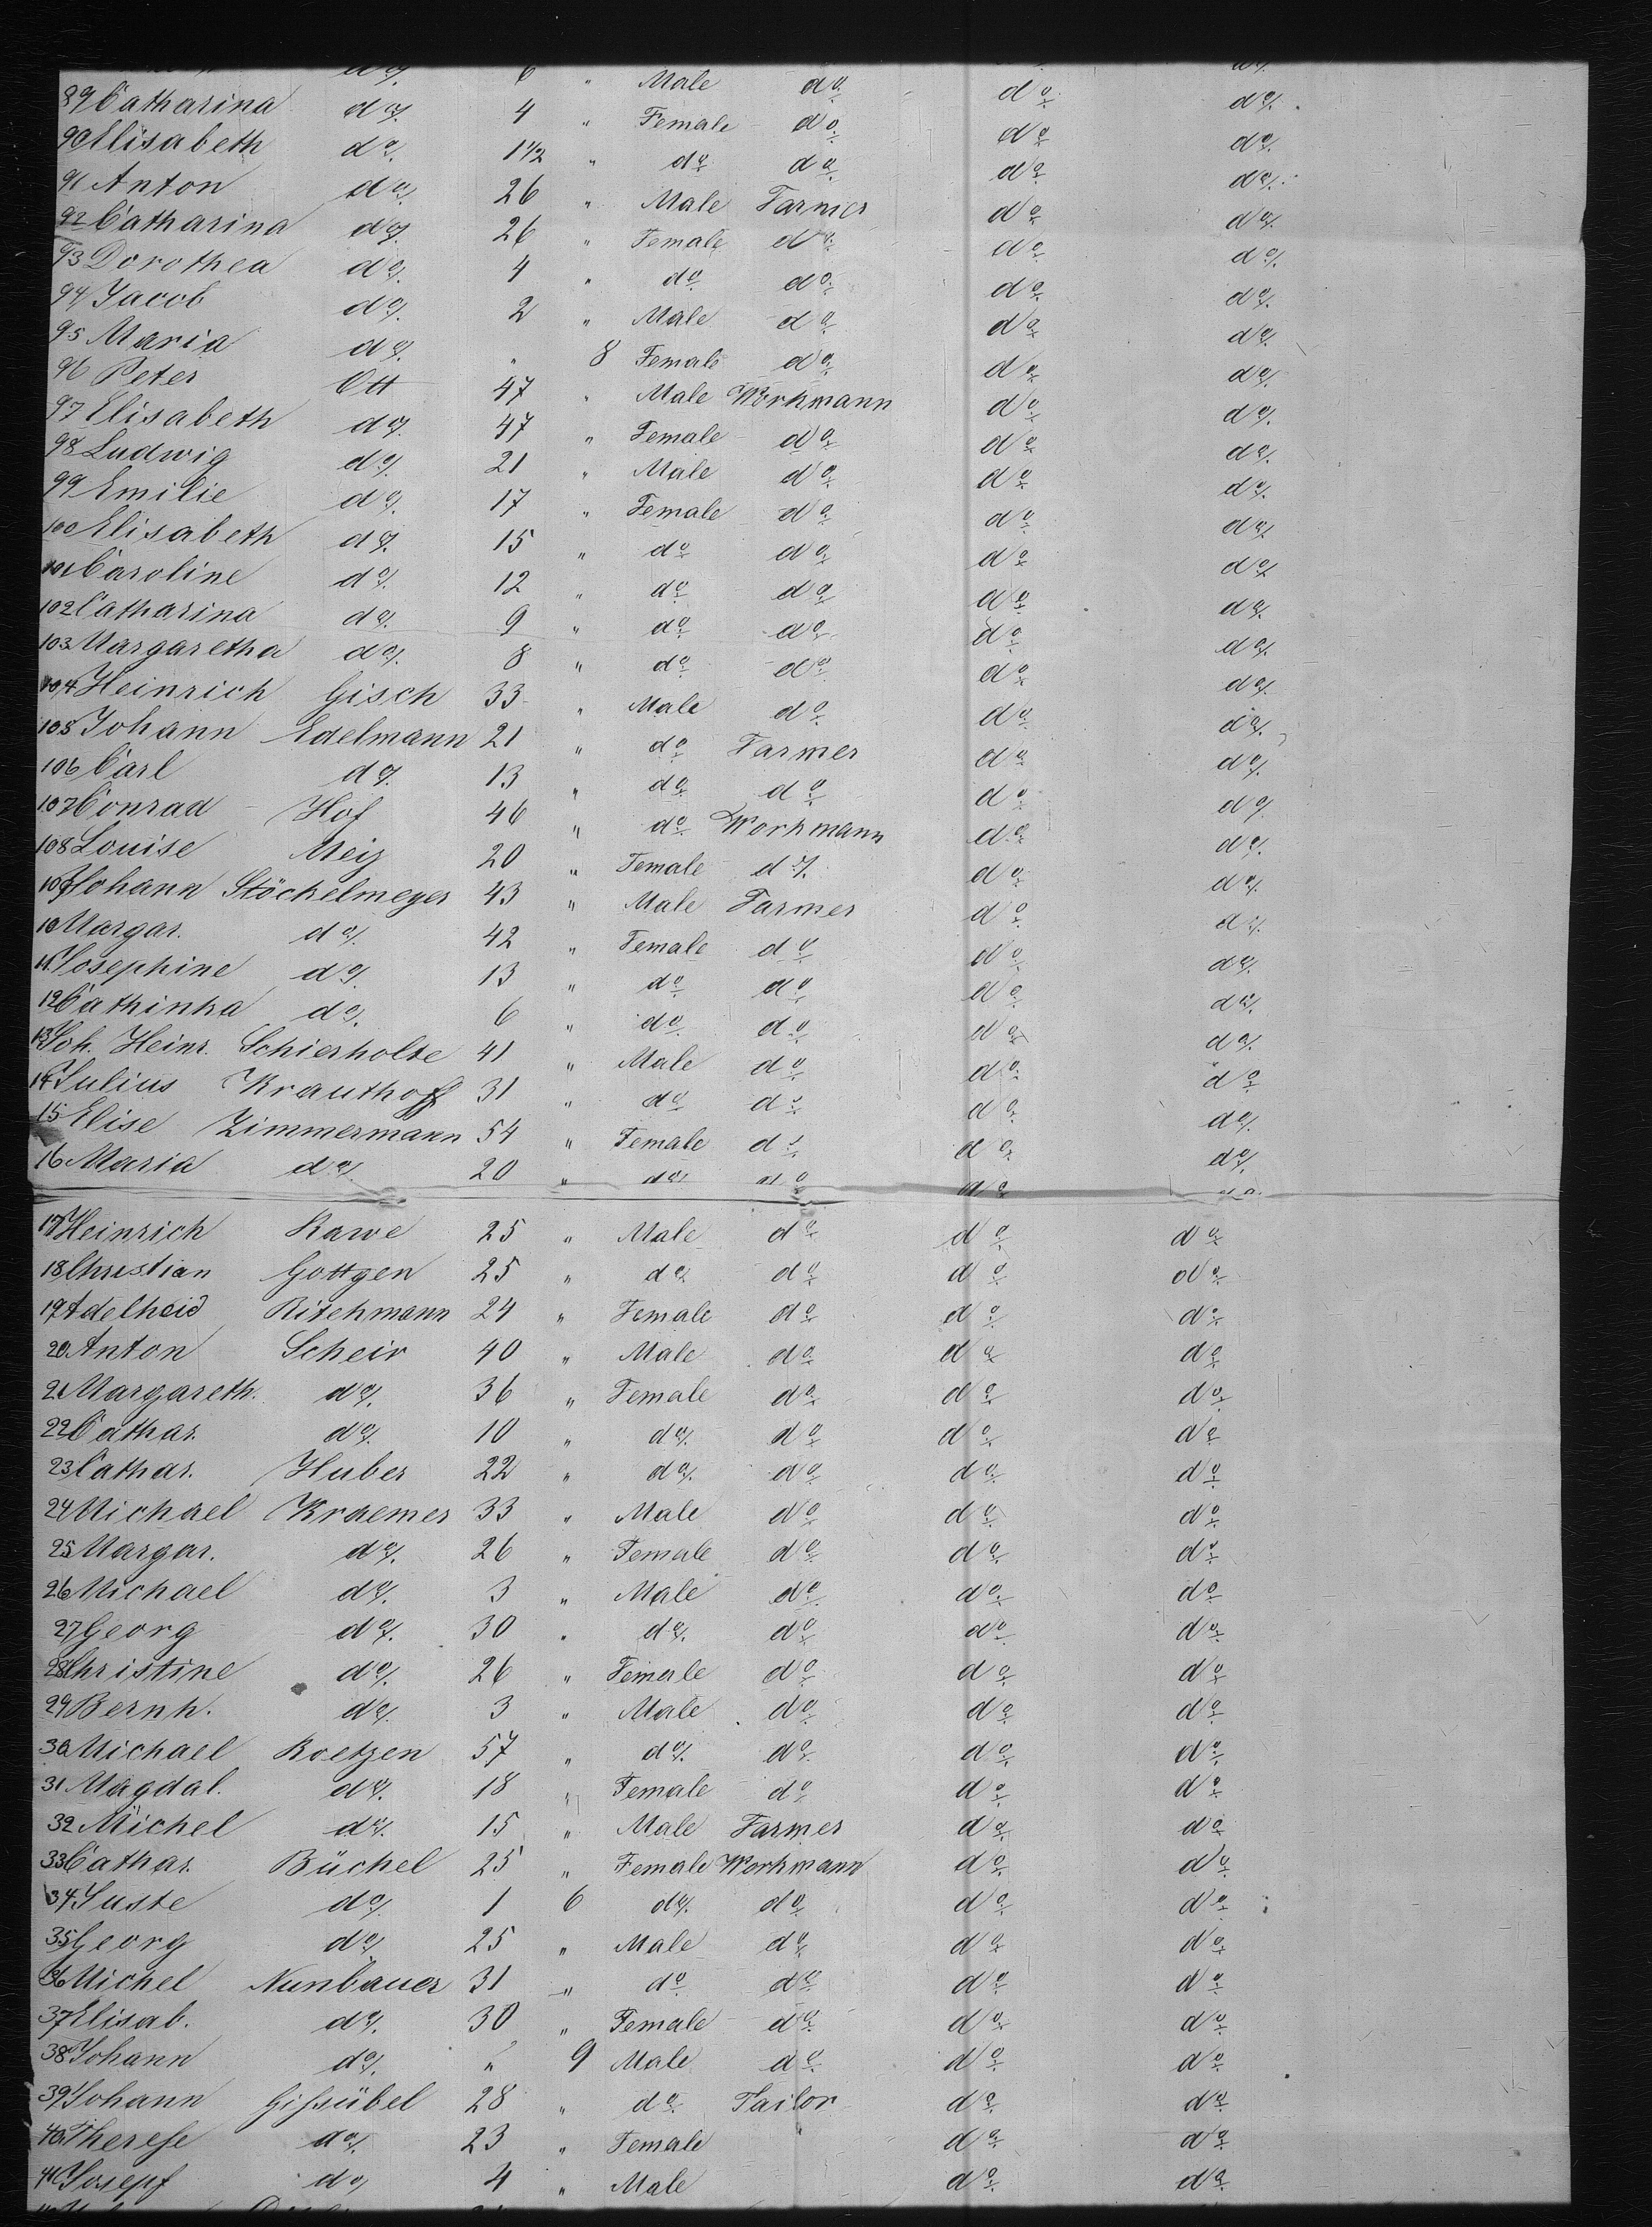 6 " Male do do do
89 Catharina do 4 " Female do do do
90 Elisabeth do 1 1/2 " do do do do
91 Anton do 26 " Male Farmer do do
92 Catharina do 26 " Female do do do
93 Dorothea do 4 " do do do do
94 Jacob do 2 " Male do do do
95 Maria do " 8 Female do do do
96 Peter Ott 47 " Male Workmann do do
97 Elisabeth do 47 " Female do do do
98 Ludwig do 21 " Male do do do
99 Emilie do 17 " Female do do do
100 Elisabeth do 15 " do do do do
101 Caroline do 12 " do do do do
102 Catharina do 9 " do do do do
103 Margaretha do 8 " do do do do
104 Heinrich Gisch 33 " Male do do do
105 Johann Edelmann 21 " do Farmer do do
106 Carl do 13 " do do do do
107 Conrad Hof 46 " do Workmann do do
108 Louise Meiz 20 " Female do do do
109 Johann Stöckelmeyer 43 " Male Farmer do do
10 Margar. do 42 " Female do do do
11 Josephine do 13 " do do do do
12 Cathinka do 6 " do do do do
13 Joh. Heinr. Schierholte 41 " Male do do do
14 Julius Krauthoff 31 " do do do do
15 Elise Zimmermann 54 " Female do do do
16 Maria do 20 " do do do do
17 Heinrich Rawe 25 " Male do do do
18 Christian Gottgen 25 " do do do do
19 Adelheid Ritehmann 24 " Female do do do
20 Anton Scheir 40 " Male do do do
21 Margareth. do 36 " Female do do do
22 Cathar. do 10 " do do do do
23 Cathar. Huber 22 " do do do do
24 Michael Kraemer 33 " Male do do do
25 Margar. do 26 " Female do do do
26 Michael do 3 " Male do do do
27 Georg do 30 " do do do do
28 Christine do 26 " Female do do do
29 Bernh. do 3 " Male do do do
30 Michael Roetzen 57 " do do do do
31 Magdal. do 18 " Female do do do
32 Michel do 15 " Male Farmer do do
33 Cathar. Büchel 25 " Female Workmann do do
34 Suste do 1 6 do do do do
35 Georg do 25 " Male do do do
36 Michel Nunbauer 31 " do do do do
37 Elisab. do 30 " Female do do do
38 Johann do " 9 Male do do do
39 Johann Gißübel 28 " do Tailor do do
40 Therese do 23 " Female " do do
41 Josepf do 4 " Male do do